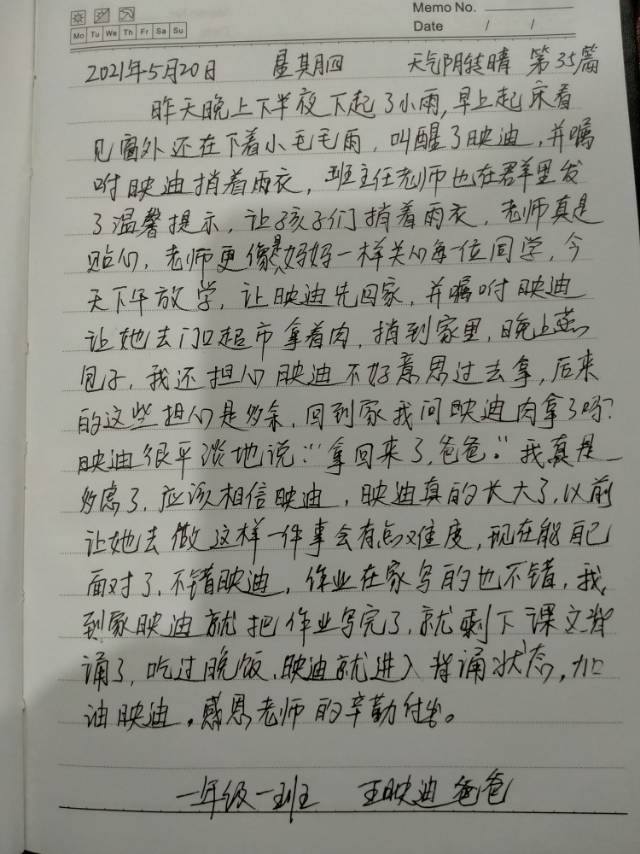 Memo No.
Mo Tu We Th Fr Sa Su
Date / /
2021年5月20日 星期四 天气阴转晴 第35篇
昨天晚上下半夜下起了小雨,早上起床看
见窗外还在下着小毛毛雨,叫醒了映迪,并嘱
咐映迪捎着雨衣,班主任老师也在群里发
了温馨提示,让孩子们捎着雨衣,老师真是
贴心,老师更像是妈妈一样关心每一位同学,今
天下午放学,让映迪先回家,并嘱咐映迪
让她去门口超市拿着肉,捎到家里,晚上蒸
包子,我还担心映迪不好意思过去拿,后来
的这些担心是多余,回到家我问映迪肉拿了吗?
映迪很平淡地说:“拿回来了,爸爸。”我真是
多虑了,应该相信映迪,映迪真的长大了,以前
让她去做这样一件事会有点难度,现在能自己
面对了,不错映迪,作业在家写的也不错,我
到家映迪就把作业写完了,就剩下课文背
诵了,吃过晚饭,映迪就进入背诵状态,加
油映迪。感恩老师的辛勤付出。
一年级一班 王映迪爸爸